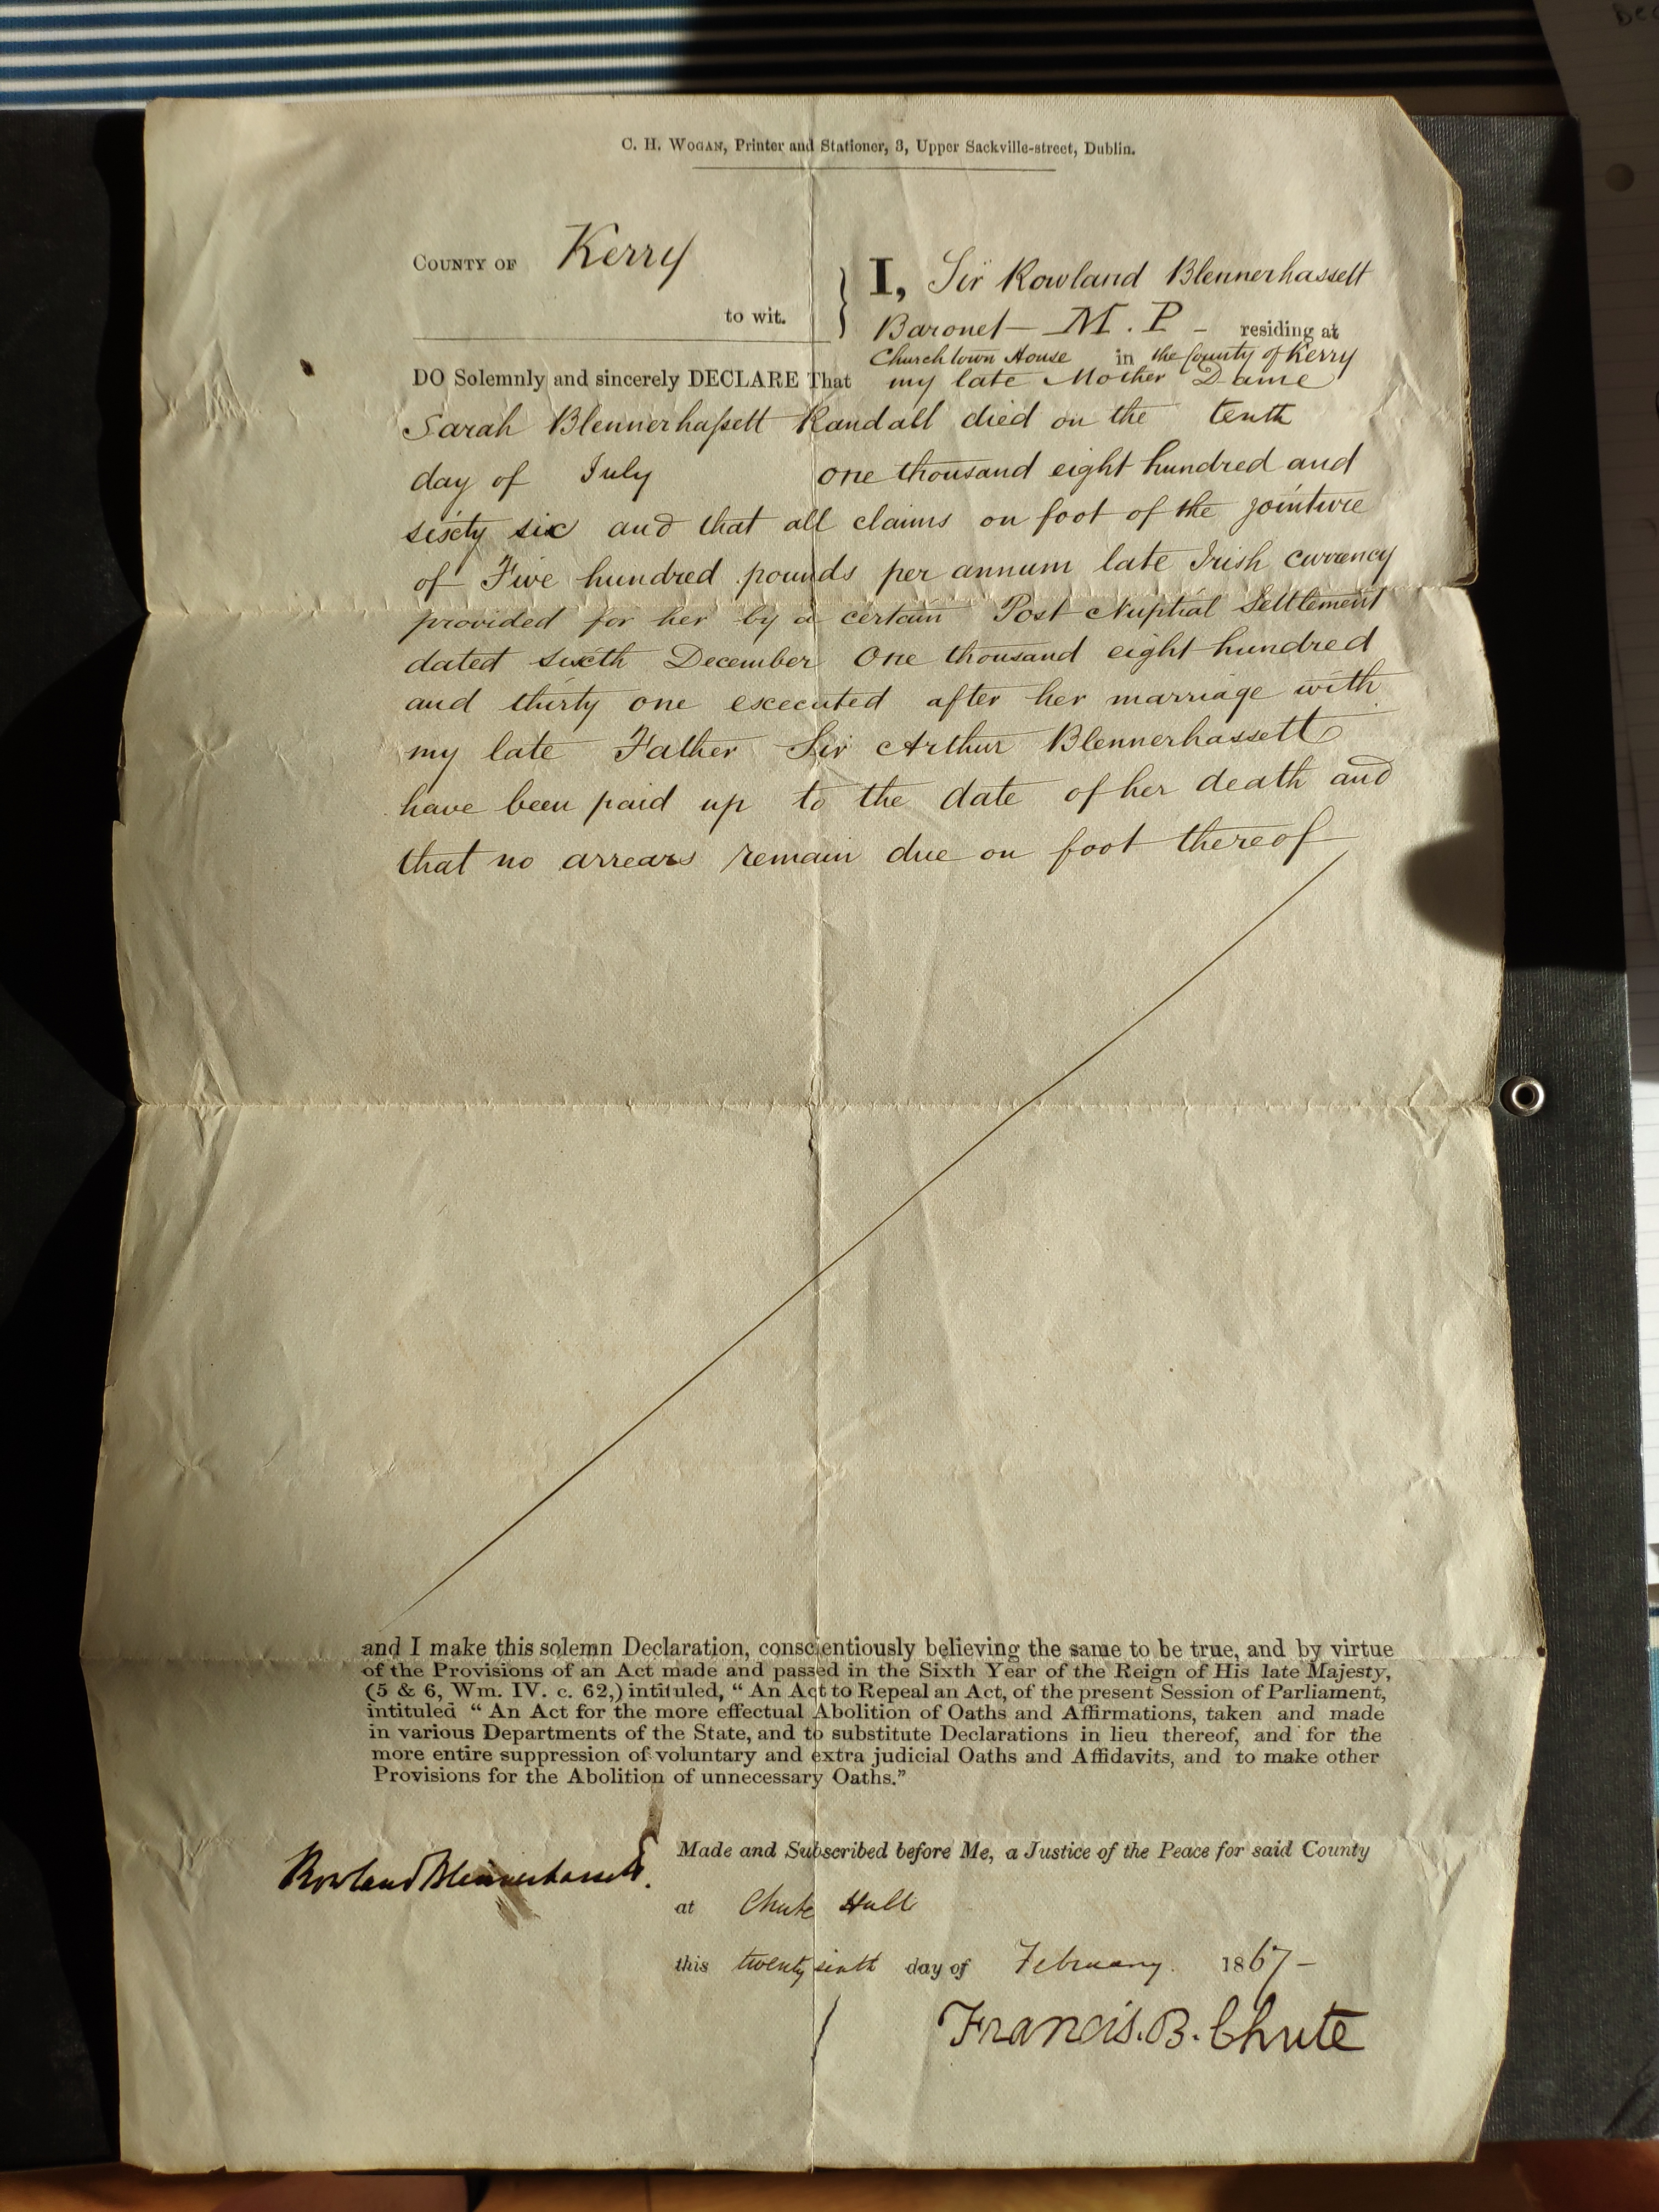 C. H. WOGAN, Printer and Stationer, 3, Upper Sackville-street, Dublin.
COUNTY OF Kerry
to wit.
I, Sir Rowland Blennerhassett
Baronet — M. P — residing at
Churchtown House in the County of Kerry
DO Solemnly and sincerely DECLARE That my late Mother Dame
Sarah Blennerhaſsett Randall died on the tenth
day of July one thousand eight hundred and
sixty six and that all claims on foot of the jointure
of Five hundred pounds per annum late Irish currency
provided for her by a certain Post Nuptial Settlement
dated sixth December One thousand eight hundred
and thirty one executed after her marriage with
my late Father Sir Arthur Blennerhassett
have been paid up to the date of her death and
that no arrears remain due on foot thereof
and I make this solemn Declaration, conscientiously believing the same to be true, and by virtue
of the Provisions of an Act made and passed in the Sixth Year of the Reign of His late Majesty,
(5 & 6, Wm. IV. c. 62,) intituled, "An Act to Repeal an Act, of the present Session of Parliament,
intituled "An Act for the more effectual Abolition of Oaths and Affirmations, taken and made
in various Departments of the State, and to substitute Declarations in lieu thereof, and for the
more entire suppression of voluntary and extra judicial Oaths and Affidavits, and to make other
Provisions for the Abolition of unnecessary Oaths."
Rowland Blennerhassett.
Made and Subscribed before Me, a Justice of the Peace for said County
at Chute Hall
this twenty sixth day of February. 1867 —
Francis. B. Chute